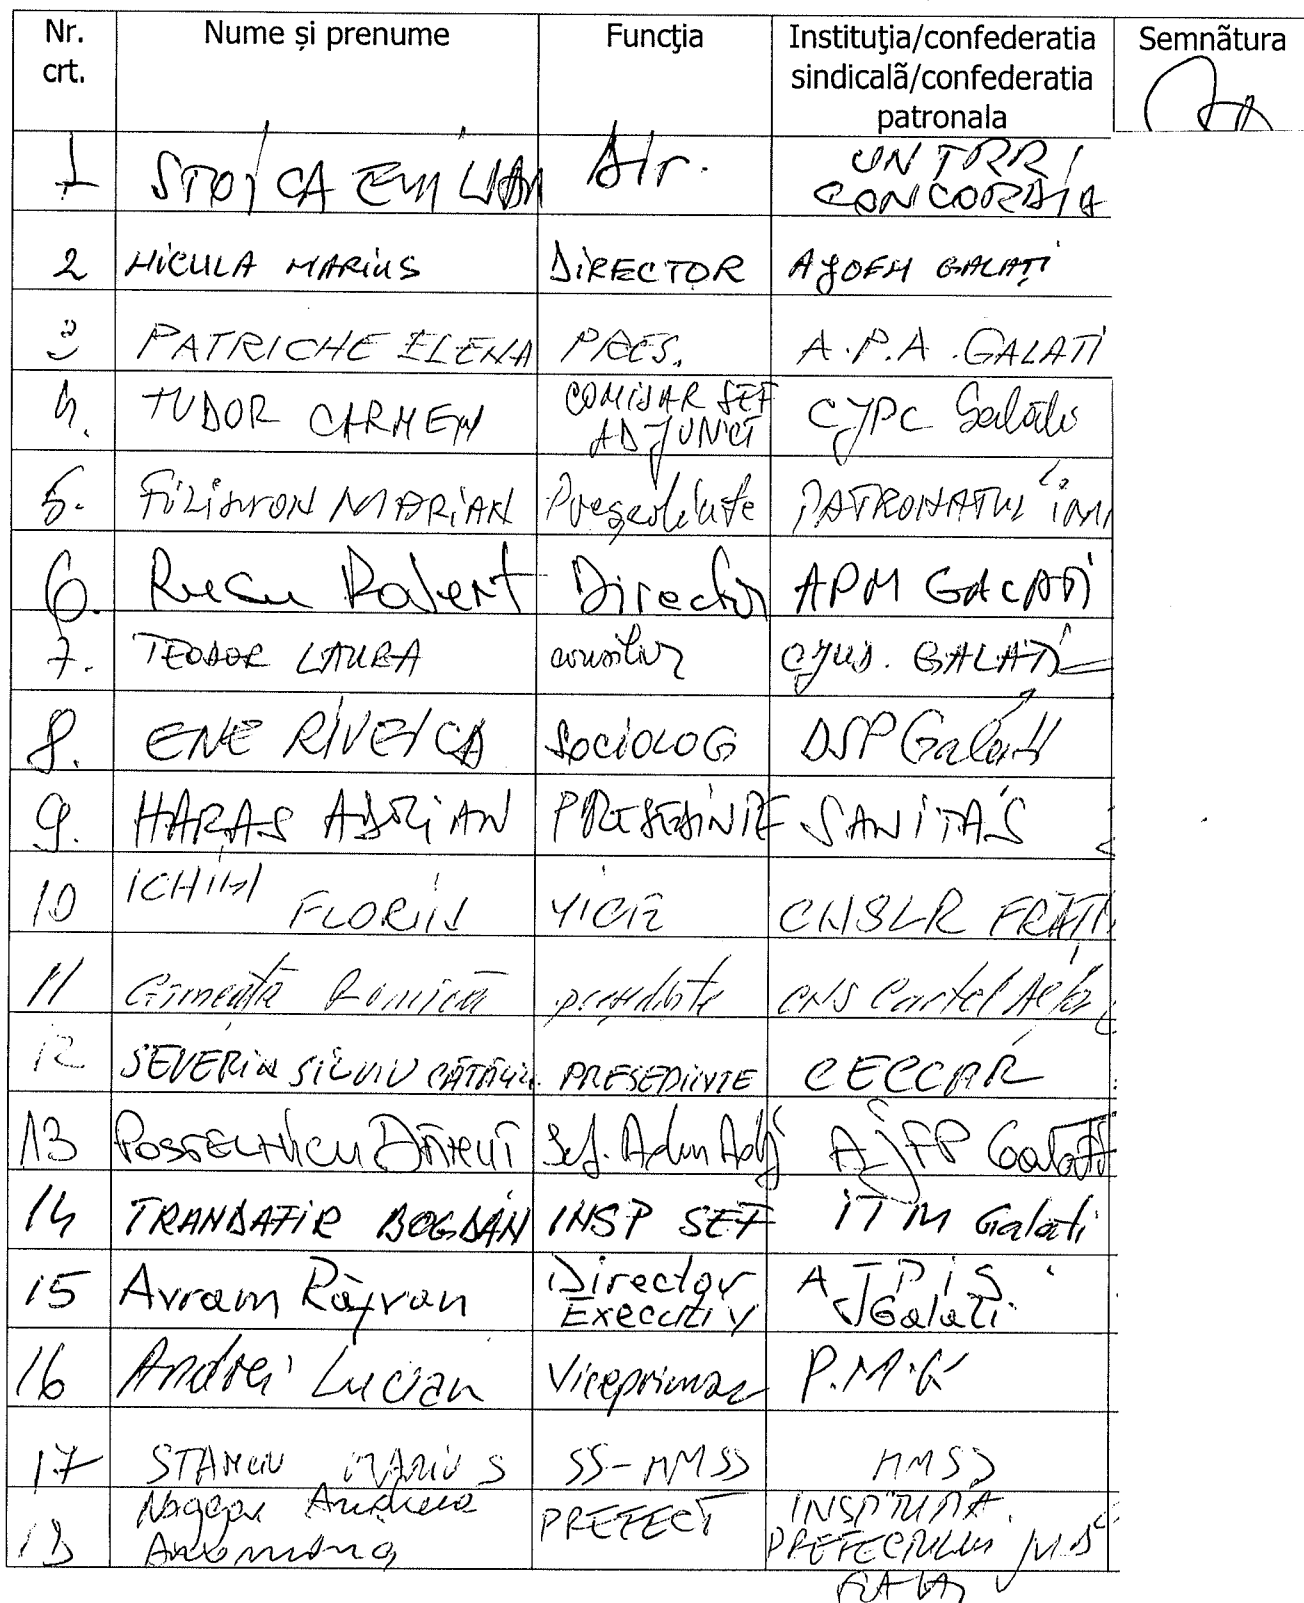 Nr. crt. Nume și prenume Funcţia Instituţia/confederatia sindicalã/confederatia patronala Semnãtura
1 STOICA EMILIAN Dir. UN TRRI CONCORDIA
2 MICULA MARIUS DIRECTOR AJOFM GALAȚI
3 PATRICHE ELENA PRES. A.P.A. GALATI
4. TUDOR CARMEN COMISAR SEF ADJUNCT CJPC Galati
5. MARIAN Președinte PATRONATUL IMM
6. Rusu Robert Director APM GALATI
7. TEODOR LAURA consilier GALATI
8. ENE RIVEICA SOCIOLOG DSP Galati
9. HARAS ADRIAN PRESEDINTE SANITAS
10 ICHIM FLORIN VICE CNSLR FRĂȚI
11 Romică președinte CNS Cartel Alfa
12 SEVERIN SILVIU CĂTĂLIN PRESEDINTE CECCAR
13 POSTELNICU DĂNUȚ Sef. Adm Adj AJFP Galati
14 TRANDAFIR BOGDAN INSP SEF ITM Galati
15 Avram Răzvan Director Executiv AJPIS Galati
16 Andrei Lucian Viceprimar P.M.G
17 STANCIU MARIUS SS-MMSS MMSS
18 Andreea PREFECT PREFECTULUI JUD